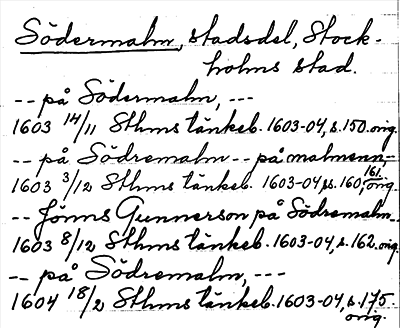 Södermalm, stadsdel, Stock-
holms stad.
-- på Södermalm, ---
1603 14/11 Sthms tänkeb. 1603-04, s. 150. orig.
-- på Södremalm -- på malmenn,-
1603 3/12 Sthms tänkeb. 1603-04, s. 160, 161. orig.
-- Jönns Gunnerson på Södremalm --
1603 8/12 Sthms tänkeb. 1603-04, s. 162. orig.
-- på Södremalm, ---
1604 18/2 Sthms tänkeb. 1603-04, s. 175.
orig.